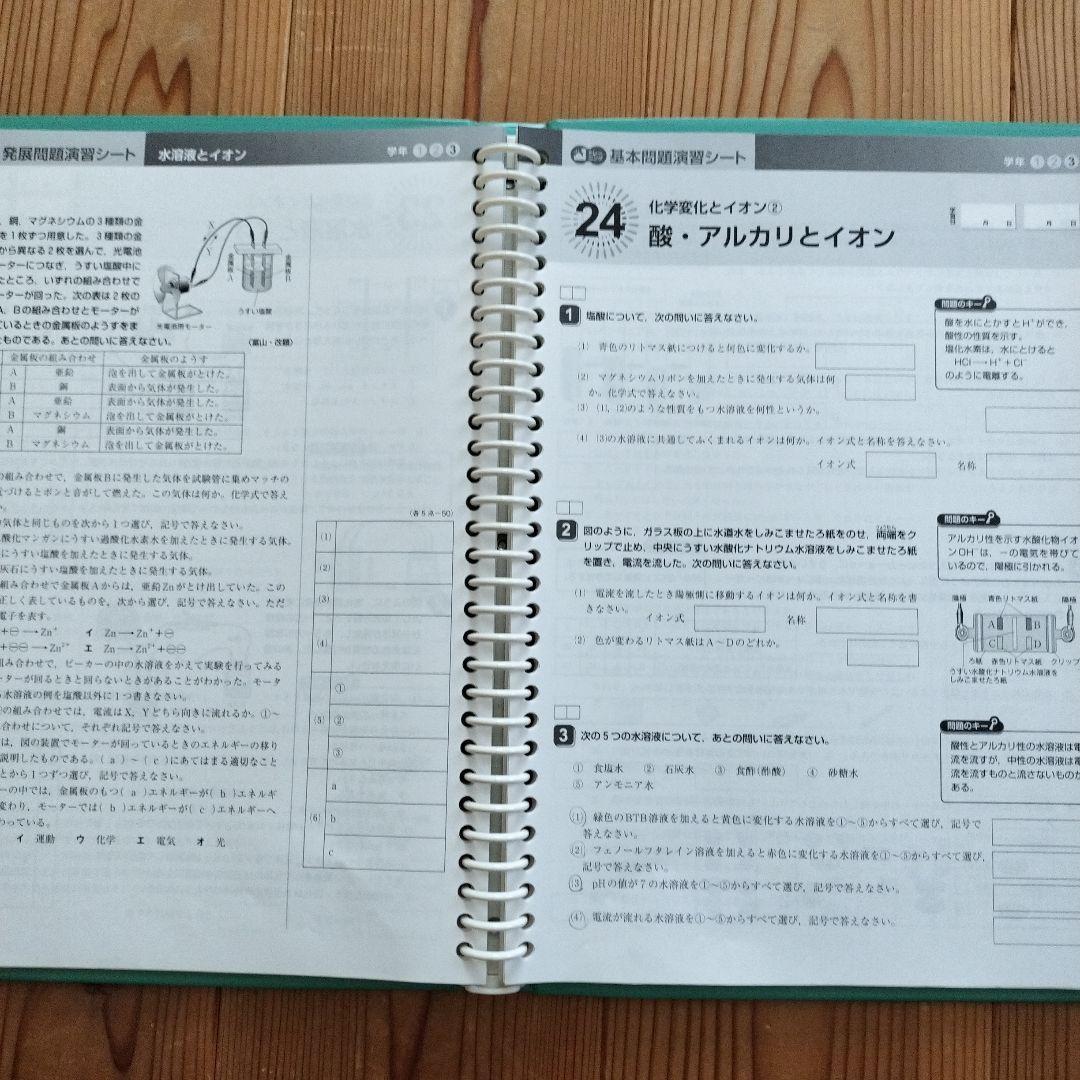 発展問題演習シート 水溶液とイオン 学年 1 2 3
、銅、マグネシウムの3種類の金
を1枚ずつ用意した。3種類の金
から異なる2枚を選んで、光電池
ーターにつなぎ、うすい塩酸中に
たところ、いずれの組み合わせで
ーターが回った。次の表は2枚の
A、Bの組み合わせとモーターが
ているときの金属板のようすをま
たものである。あとの問いに答えなさい。
〈富山・改題〉
X
Y
金属板A
金属板B
うすい塩酸
光電池用モーター
金属板の組み合わせ 金属板のようす
A 亜鉛 泡を出して金属板がとけた。
B 銅 表面から気体が発生した。
A 亜鉛 表面から気体が発生した。
B マグネシウム 泡を出して金属板がとけた。
A 銅 表面から気体が発生した。
B マグネシウム 泡を出して金属板がとけた。
の組み合わせで、金属板Bに発生した気体を試験管に集めマッチの
近づけるとポンと音がして燃えた。この気体は何か。化学式で答え
。
の気体と同じものを次から1つ選び、記号で答えなさい。
酸化マンガンにうすい過酸化水素水を加えたときに発生する気体。
にうすい塩酸を加えたときに発生する気体。
灰石にうすい塩酸を加えたときに発生する気体。
組み合わせで金属板Aからは、亜鉛Znがとけ出していた。この
正しく表しているものを、次から選び、記号で答えなさい。ただ
電子を表す。
+⊖→Zn⁺ イ Zn→Zn⁺+⊖
+⊖⊖→Zn²⁺ エ Zn→Zn²⁺+⊖⊖
組み合わせで、ビーカーの中の水溶液をかえて実験を行ってみる
ーターが回るときと回らないときがあることがわかった。モータ
る水溶液の例を塩酸以外に1つ書きなさい。
の組み合わせでは、電流はX、Yどちら向きに流れるか。①〜
合わせについて、それぞれ記号で答えなさい。
は、図の装置でモーターが回っているときのエネルギーの移り
説明したものである。(a)〜(c)にあてはまる適切なこと
とから1つずつ選び、記号で答えなさい。
ーの中では、金属板のもつ(a)エネルギーが(b)エネルギ
変わり、モーターでは(b)エネルギーが(c)エネルギーへ
わっている。
イ 運動 ウ 化学 エ 電気 オ 光
(各5点-50)
(1)
(2)
(3)
(4)
①
(5) ②
③
a
(6) b
c
基本問題演習シート 学年 1 2 3
24 化学変化とイオン②
酸・アルカリとイオン
学習日 月 日 月 日
1 塩酸について、次の問いに答えなさい。
(1) 青色のリトマス紙につけると何色に変化するか。
(2) マグネシウムリボンを加えたときに発生する気体は何
か。化学式で答えなさい。
(3) (1)、(2)のような性質をもつ水溶液を何性というか。
(4) (3)の水溶液に共通してふくまれるイオンは何か。イオン式と名称を答えなさい。
イオン式 名称
問題のキー
酸を水にとかすとH⁺ができ、
酸性の性質を示す。
塩化水素は、水にとけると
HCl→H⁺+Cl⁻
のように電離する。
2 図のように、ガラス板の上に水道水をしみこませたろ紙をのせ、両端をク
リップで止め、中央にうすい水酸化ナトリウム水溶液をしみこませたろ紙
を置き、電流を流した。次の問いに答えなさい。
(1) 電流を流したとき陽極側に移動するイオンは何か。イオン式と名称を書
きなさい。 イオン式 名称
(2) 色が変わるリトマス紙はA〜Dのどれか。
問題のキー
アルカリ性を示す水酸化物イオ
ンOH⁻は、－の電気を帯びて
いるので、陽極に引かれる。
陽極 青色リトマス紙 陰極
A B
C D
ろ紙 赤色リトマス紙 クリップ
うすい水酸化ナトリウム水溶液を
しみこませたろ紙
3 次の5つの水溶液について、あとの問いに答えなさい。
① 食塩水 ② 石灰水 ③ 食酢(酢酸) ④ 砂糖水
⑤ アンモニア水
(1) 緑色のBTB溶液を加えると黄色に変化する水溶液を①〜⑤からすべて選び、記号で
答えなさい。
(2) フェノールフタレイン溶液を加えると赤色に変化する水溶液を①〜⑤からすべて選び、
記号で答えなさい。
(3) pHの値が7の水溶液を①〜⑤からすべて選び、記号で答えなさい。
(4) 電流が流れる水溶液を①〜⑤からすべて選び、記号で答えなさい。
問題のキー
酸性とアルカリ性の水溶液は電
流を流すが、中性の水溶液は電
流を流すものと流さないものが
ある。